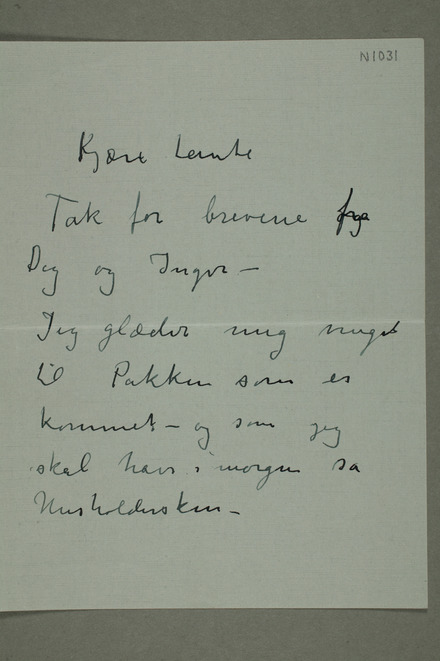 N1031
Kjære tante
Tak for brevene fra
Dig og Inger —
Jeg glæder mig meget
til Pakken som er
kommet — og som jeg
skal have i morgen sa
Husholdersken —